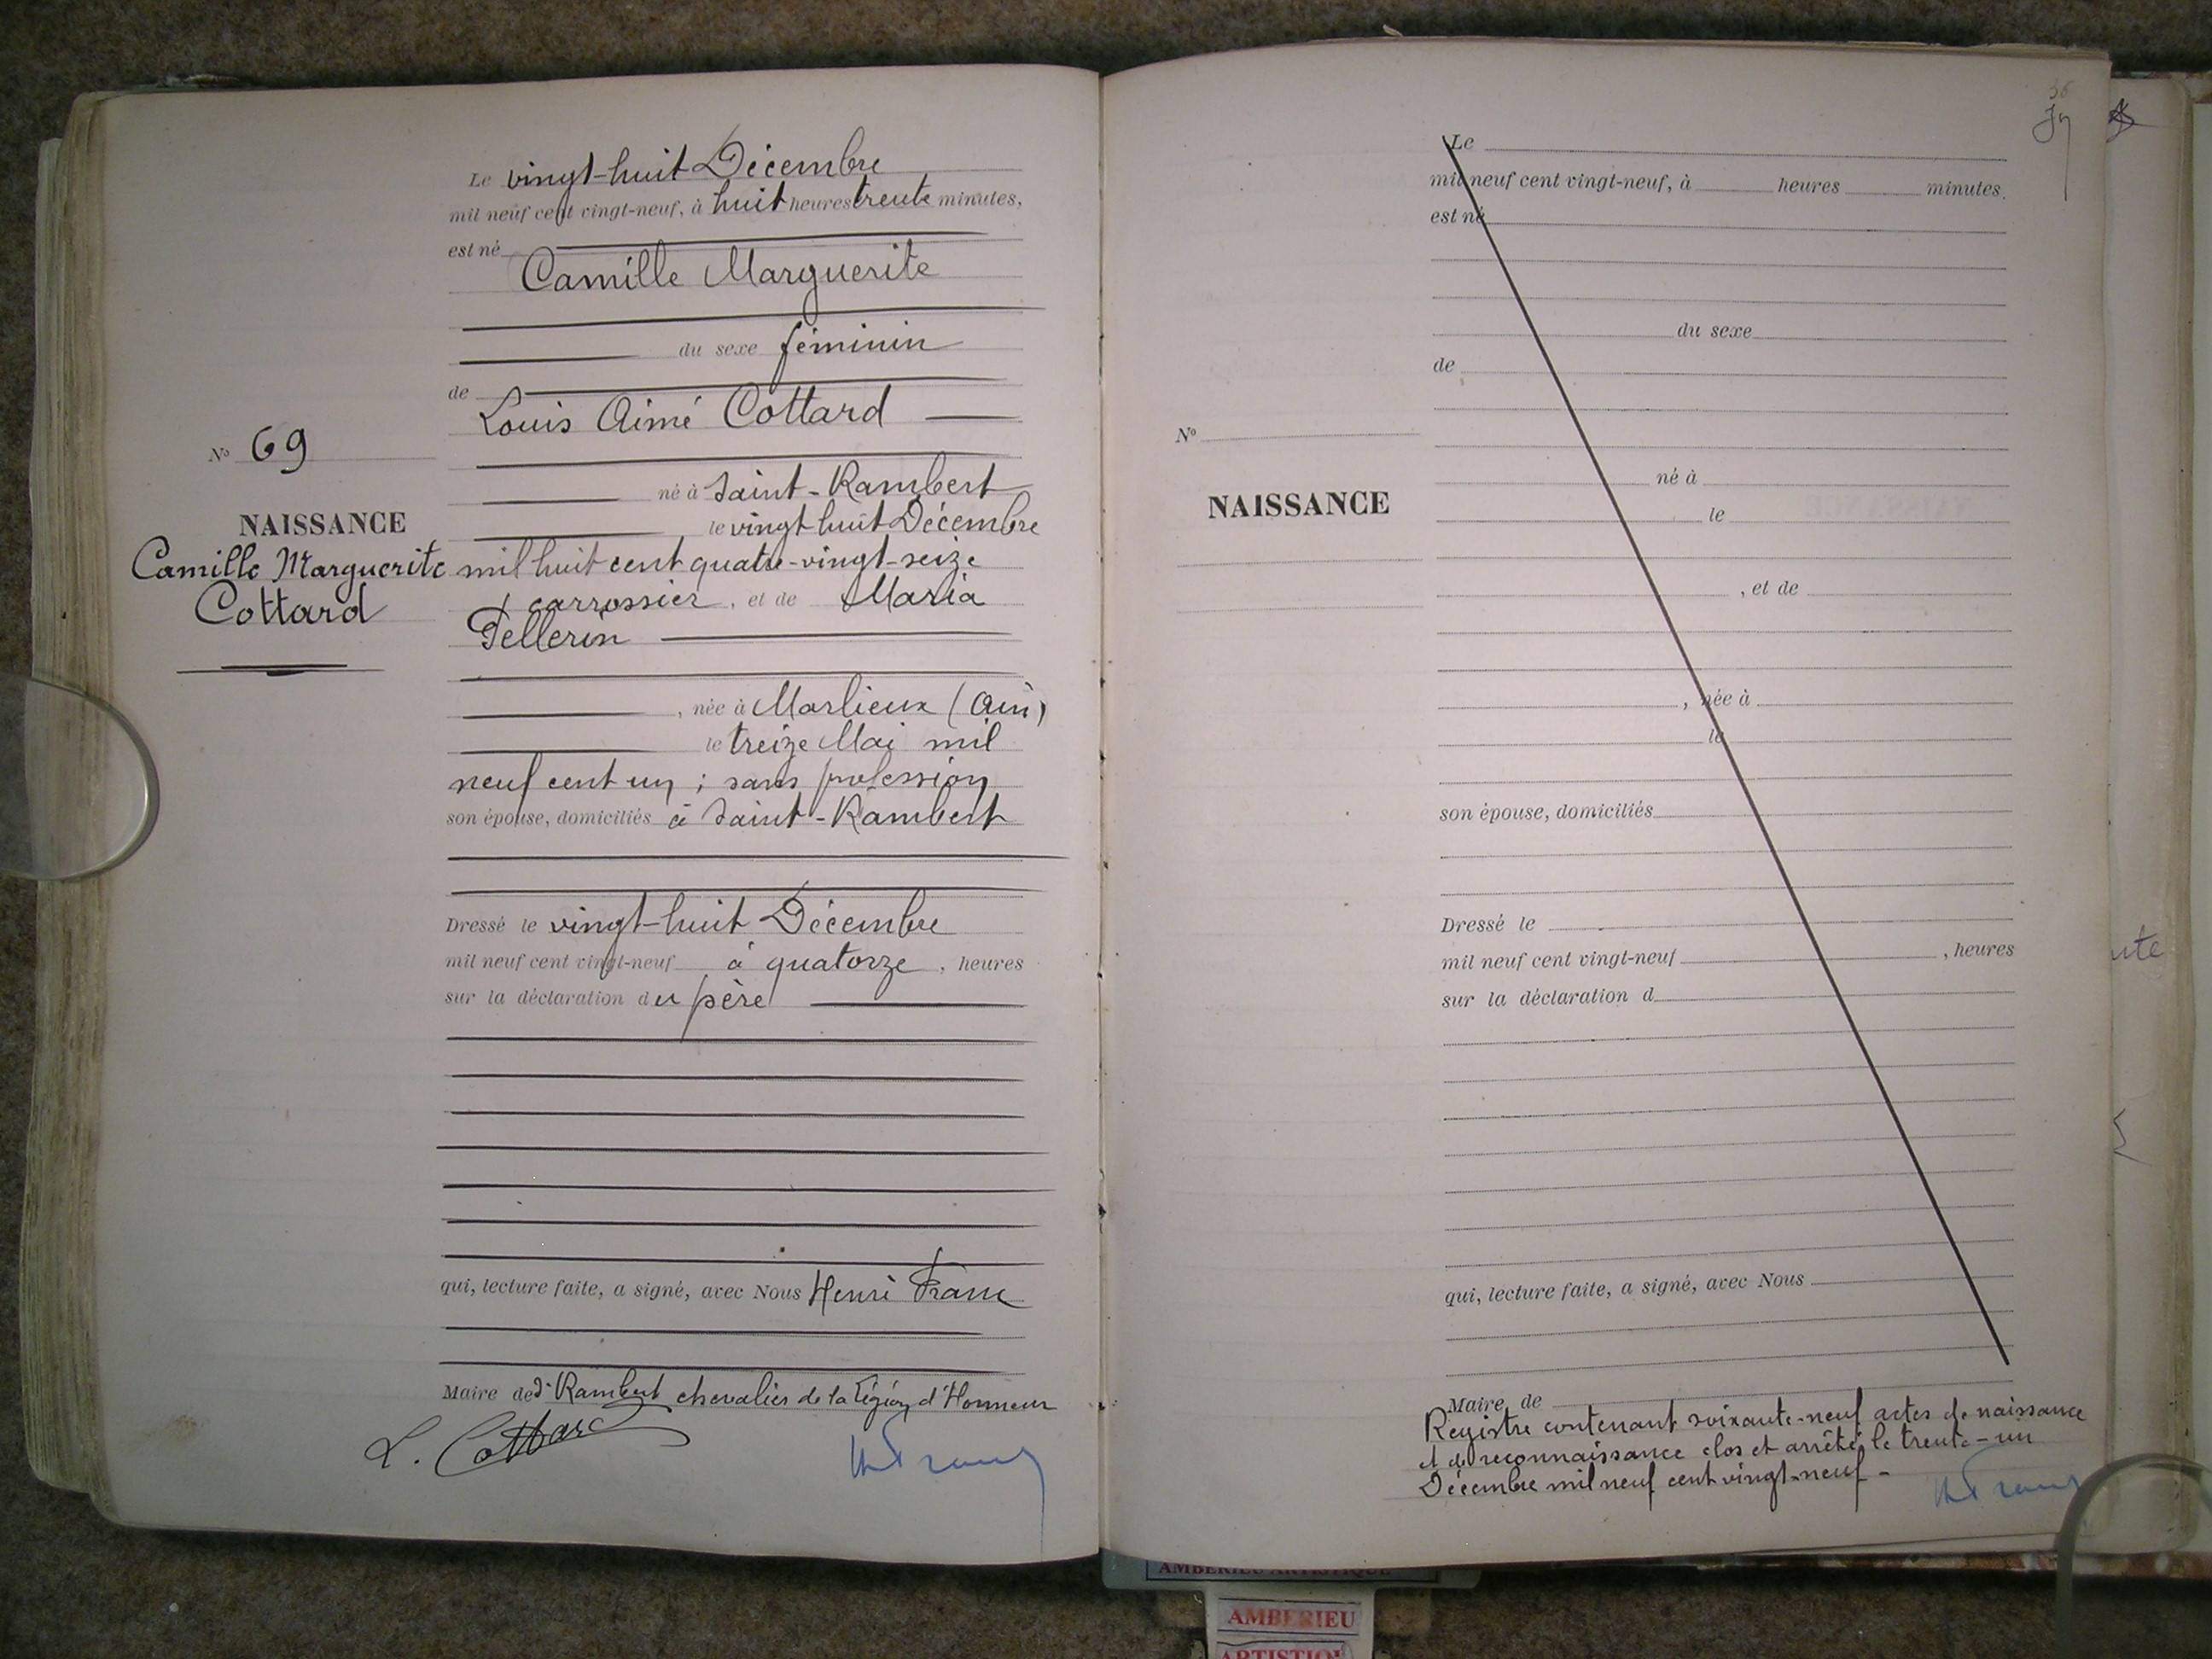 Le vingt-huit Décembre
mil neuf cent vingt-neuf, à huit heures trente minutes,
est né
Camille Marguerite
du sexe féminin
de
Louis Aimé Cottard
né à Saint-Rambert
le vingt huit Décembre
mil huit cent quatre-vingt-seize
carrossier, et de Maria
Pellerin
, née à Marlieux (Ain)
le treize Mai mil
neuf cent un ; sans profession
son épouse, domiciliés à Saint-Rambert
Dressé le vingt-huit Décembre
mil neuf cent vingt-neuf à quatorze, heures
sur la déclaration du père
qui, lecture faite, a signé, avec Nous Henri Franc
Maire de St Rambert chevalier de la Légion d'Honneur
L. Cottard
N° 69
NAISSANCE
Camille Marguerite
Cottard
Le
mil neuf cent vingt-neuf, à heures minutes.
est né
du sexe
de
né à
le
, et de
, née à
le
son épouse, domiciliés
Dressé le
mil neuf cent vingt-neuf , heures
sur la déclaration d
qui, lecture faite, a signé, avec Nous
Maire de
N°
NAISSANCE
Registre contenant soixante-neuf actes de naissance
et de reconnaissance clos et arrêté le trente-un
Décembre mil neuf cent vingt-neuf -
AMBERIEU ARTISTIQUE
AMBERIEU